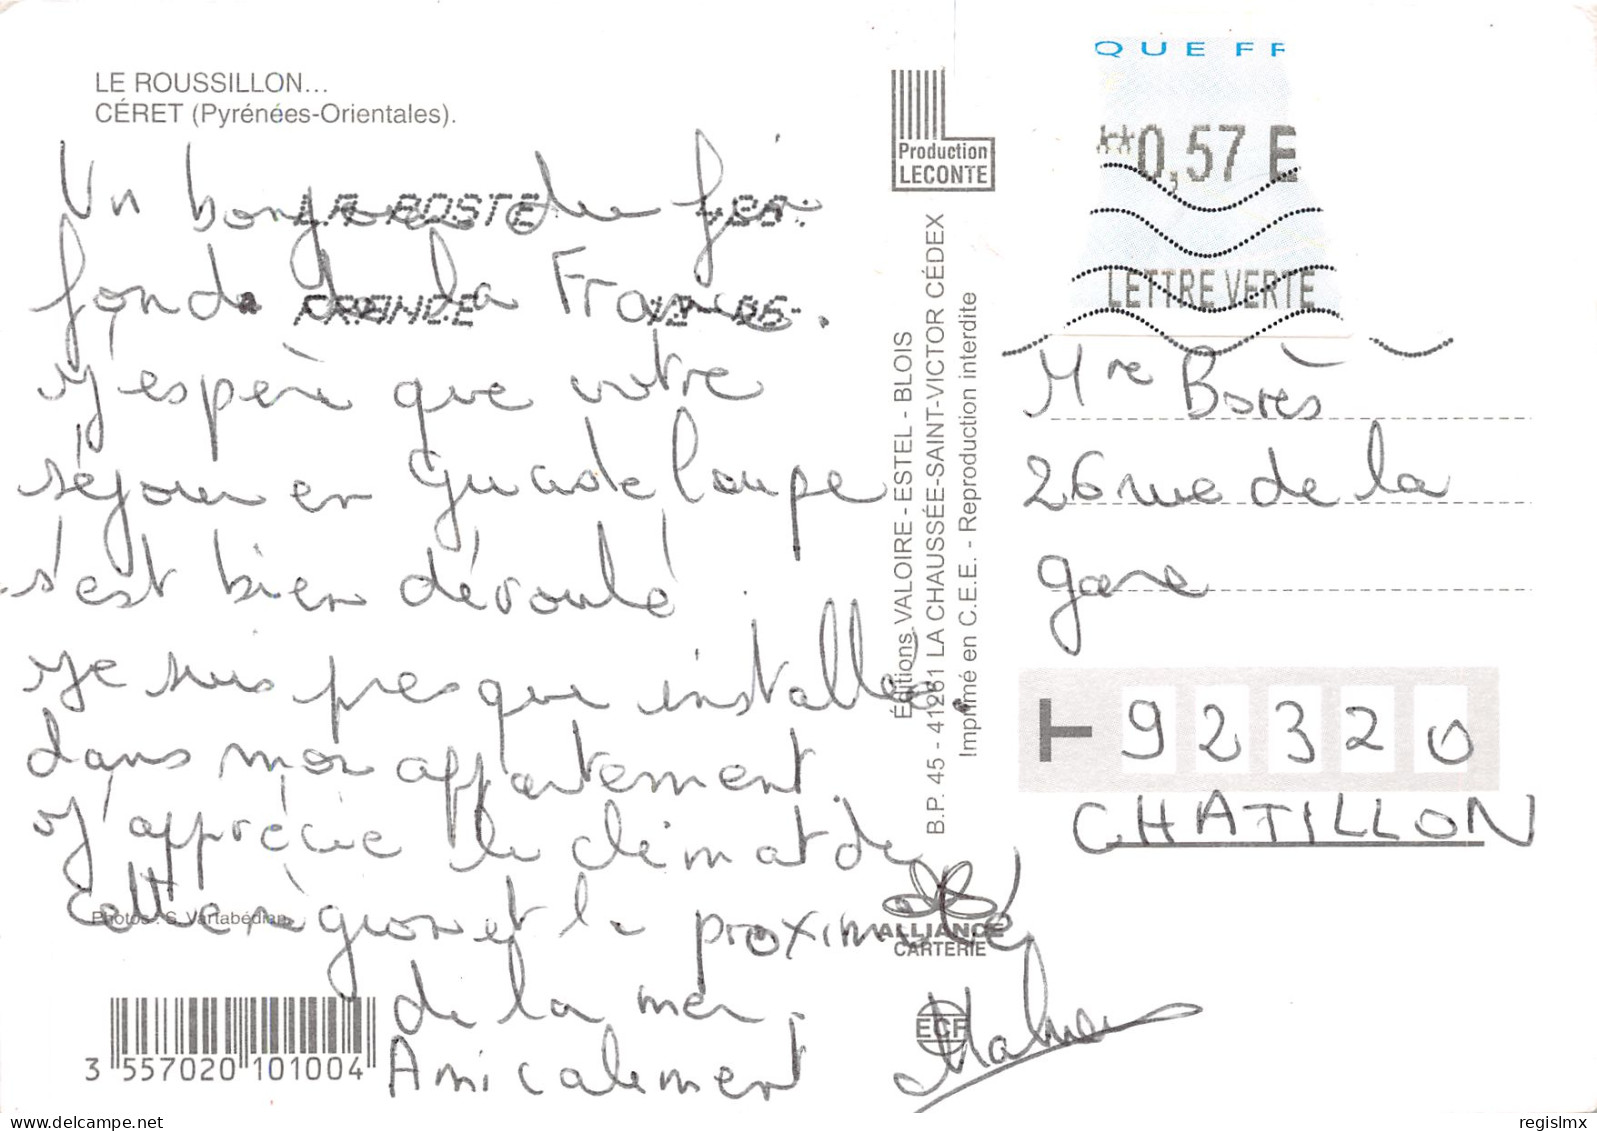 LE ROUSSILLON...
CÉRET (Pyrénées-Orientales).
Un bonjour du fin
fond de la France.
J'espère que votre
séjour en Guadeloupe
s'est bien déroulé.
Je suis presque installée
dans mon appartement.
J'apprécie le climat de
cette région et la proximité
de la mer.
Amicalement
Photos : S. Vartabédian
3 557020 101004
LA POSTE
FRANCE
Production
LECONTE
Éditions VALOIRE - ESTEL - BLOIS
B.P. 45 - 41261 LA CHAUSSÉE-SAINT-VICTOR CÉDEX
Imprimé en C.E.E. - Reproduction interdite
ALLIANCE
CARTERIE
ECF
QUE FF
**0,57 E
LETTRE VERTE
Mre Borès
26 rue de la
gare
T 92320
CHATILLON
regislmx
delcampe.net